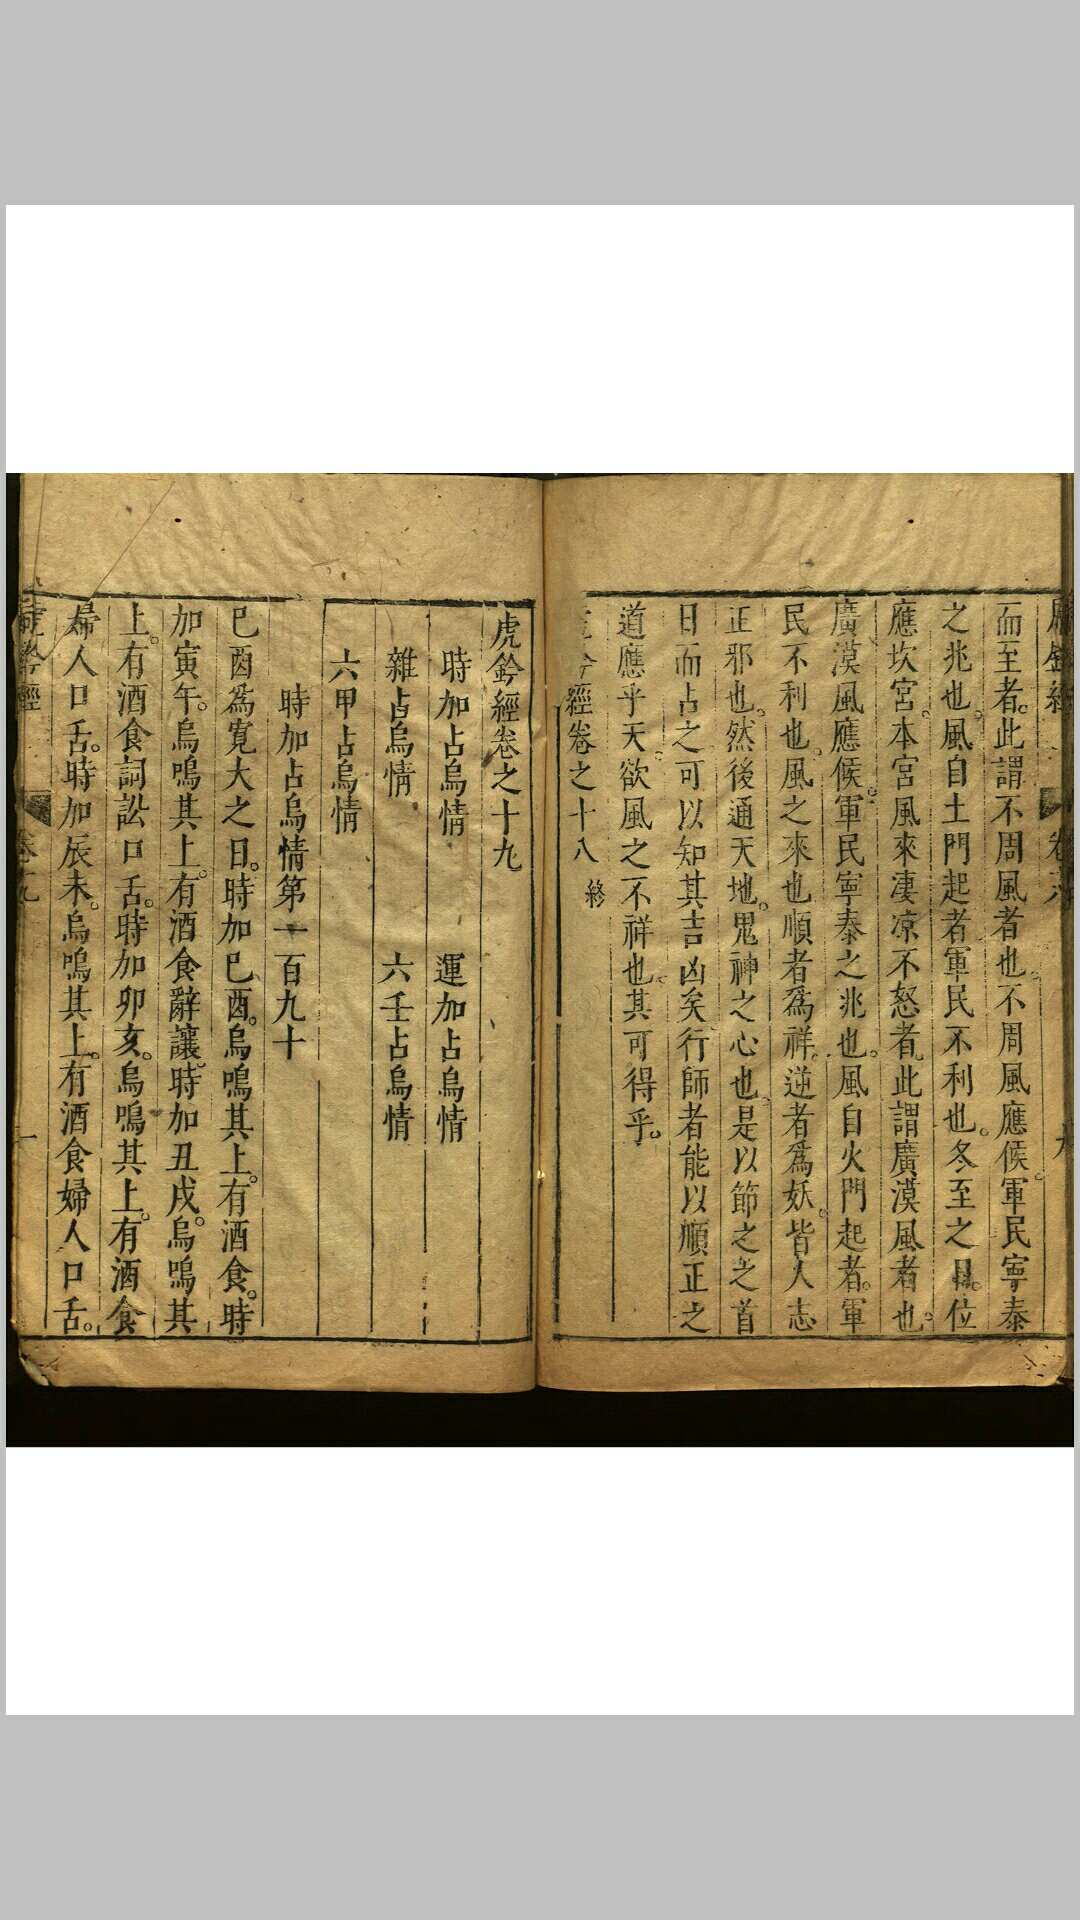 虎鈐經 卷十八 九
而至者。此謂不周風者也。不周風應候。軍民寧泰
之兆也。風自土門起者軍民不利也。冬至之日。位
應坎宮。本宮風來淒凉不怒者。此謂廣漠風者也。
廣漠風應候。軍民寧泰之兆也。風自火門起者。軍
民不利也。風之來也順者爲祥。逆者爲妖。皆人志
正邪也。然後通天地。鬼神之心也。是以節之之首
日而占之可以知其吉凶矣行師者能以順正之
道應乎天。欲風之不祥也。其可得乎。
虎鈐經卷之十八 終
虎鈐經卷之十九
時加占烏情 運加占烏情
雜占烏情 六壬占烏情
六甲占烏情
時加占烏情第一百九十
巳酉爲寛大之日。時加巳酉。烏鳴其上。有酒食。時
加寅午。烏鳴其上。有酒食辭讓。時加丑戌。烏鳴其
上。有酒食詞訟口舌。時加卯亥。烏鳴其上。有酒食
婦人口舌。時加辰未。烏鳴其上。有酒食婦人口舌。
虎鈐經 卷十九 一